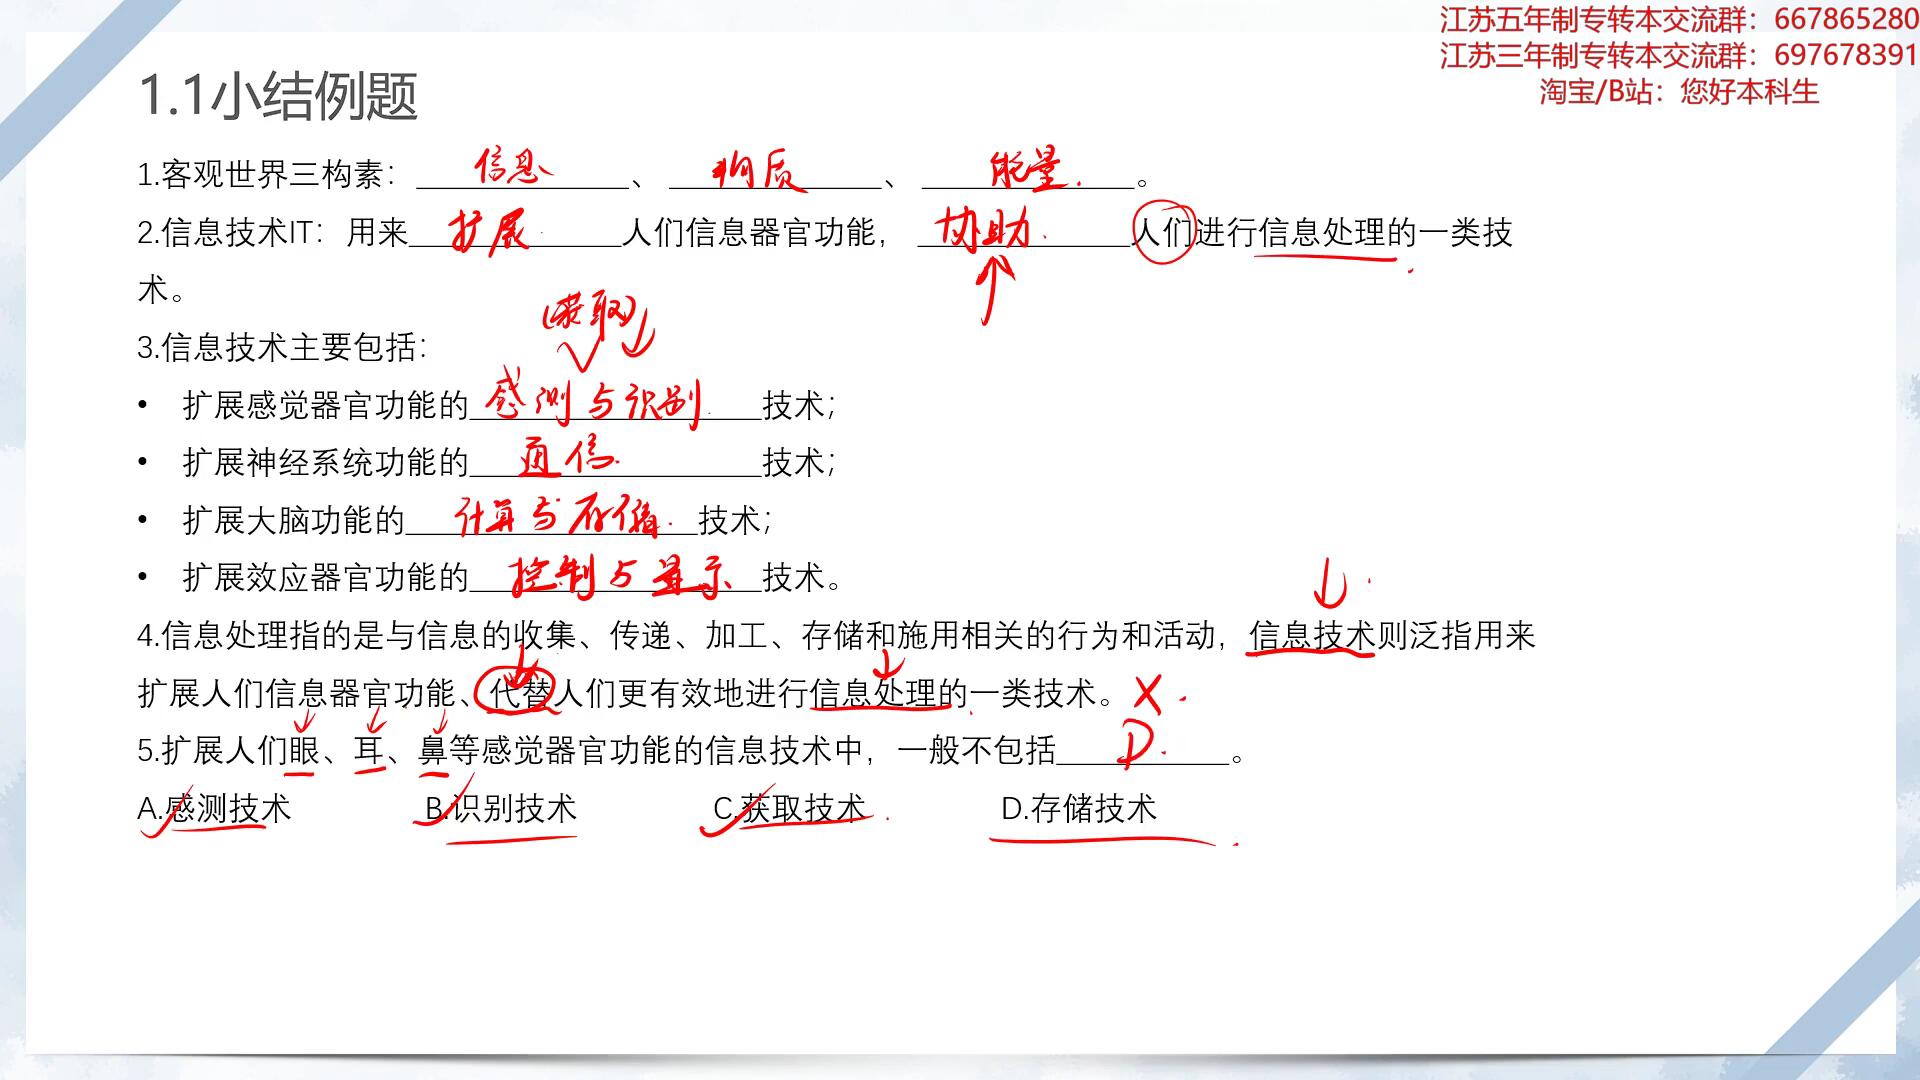 江苏五年制专转本交流群：667865280
江苏三年制专转本交流群：697678391
淘宝/B站：您好本科生
1.1小结例题
1.客观世界三构素：信息、物质、能量。
2.信息技术IT：用来扩展人们信息器官功能，协助人们进行信息处理的一类技
术。
(获取)
3.信息技术主要包括：
• 扩展感觉器官功能的感测与识别技术；
• 扩展神经系统功能的通信技术；
• 扩展大脑功能的计算与存储技术；
• 扩展效应器官功能的控制与显示技术。
4.信息处理指的是与信息的收集、传递、加工、存储和施用相关的行为和活动，信息技术则泛指用来
扩展人们信息器官功能、代替人们更有效地进行信息处理的一类技术。X
5.扩展人们眼、耳、鼻等感觉器官功能的信息技术中，一般不包括D。
A.感测技术 B.识别技术 C.获取技术 D.存储技术